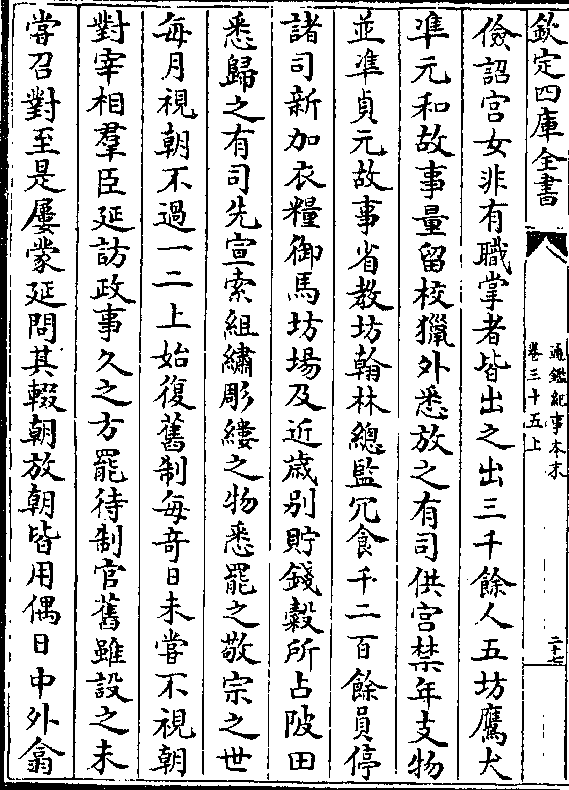 欽定四庫全書
通鑑紀事本末
卷三十五上
二十七
儉詔宫女非有職掌者皆出之出三千餘人五坊鷹犬
凖元和故事量留校獵外悉放之有司供宫禁年支物
並凖貞元故事省教坊翰林總監冗食千二百餘員停
諸司新加衣糧御馬坊場及近歲别貯錢榖所占陂田
悉歸之有司先宣索組繡彫鏤之物悉罷之敬宗之世
每月視朝不過一二上始復舊制每竒日未嘗不視朝
對宰相羣臣延訪政事久之方罷待制官舊雖設之未
嘗召對至是屢蒙延問其輟朝放朝皆用偶日中外翕